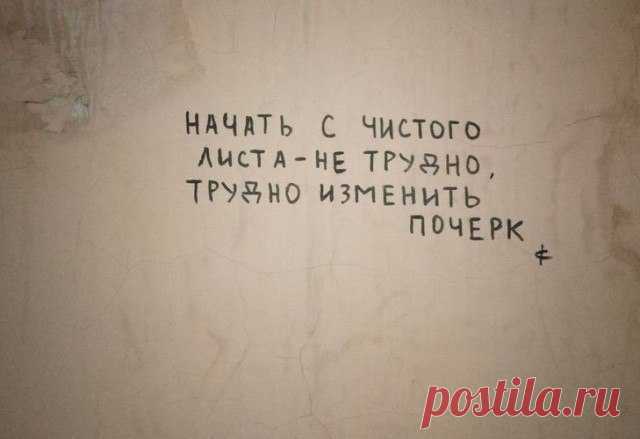 НАЧАТЬ С ЧИСТОГО
ЛИСТА-НЕ ТРУДНО,
ТРУДНО ИЗМЕНИТЬ
ПОЧЕРК
postila.ru